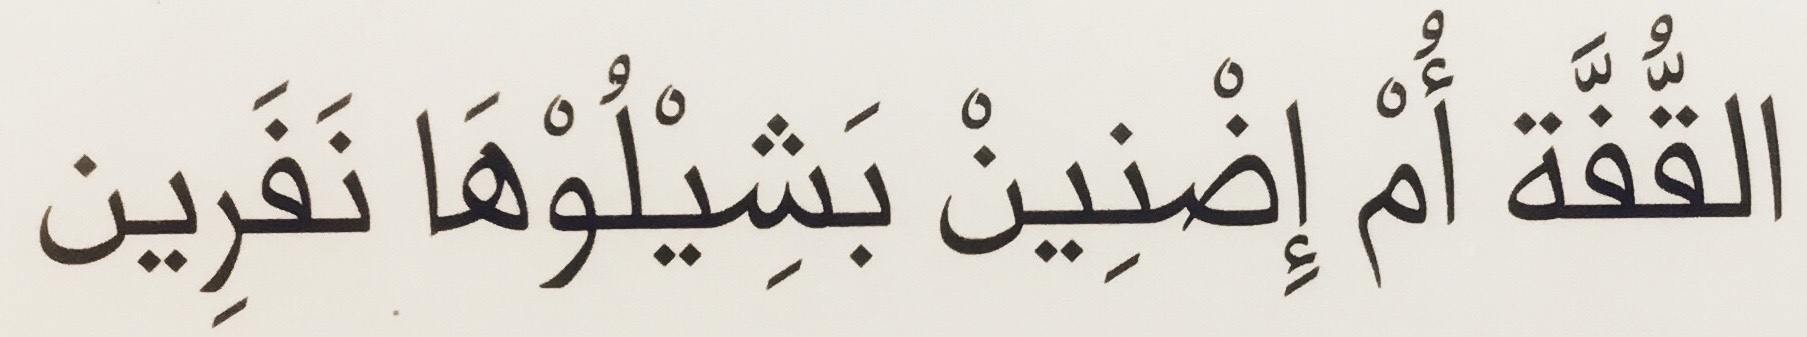 القُّفَّة أُمْ إِضْنِينْ بَشِيْلُوْهَا نَفَرِين